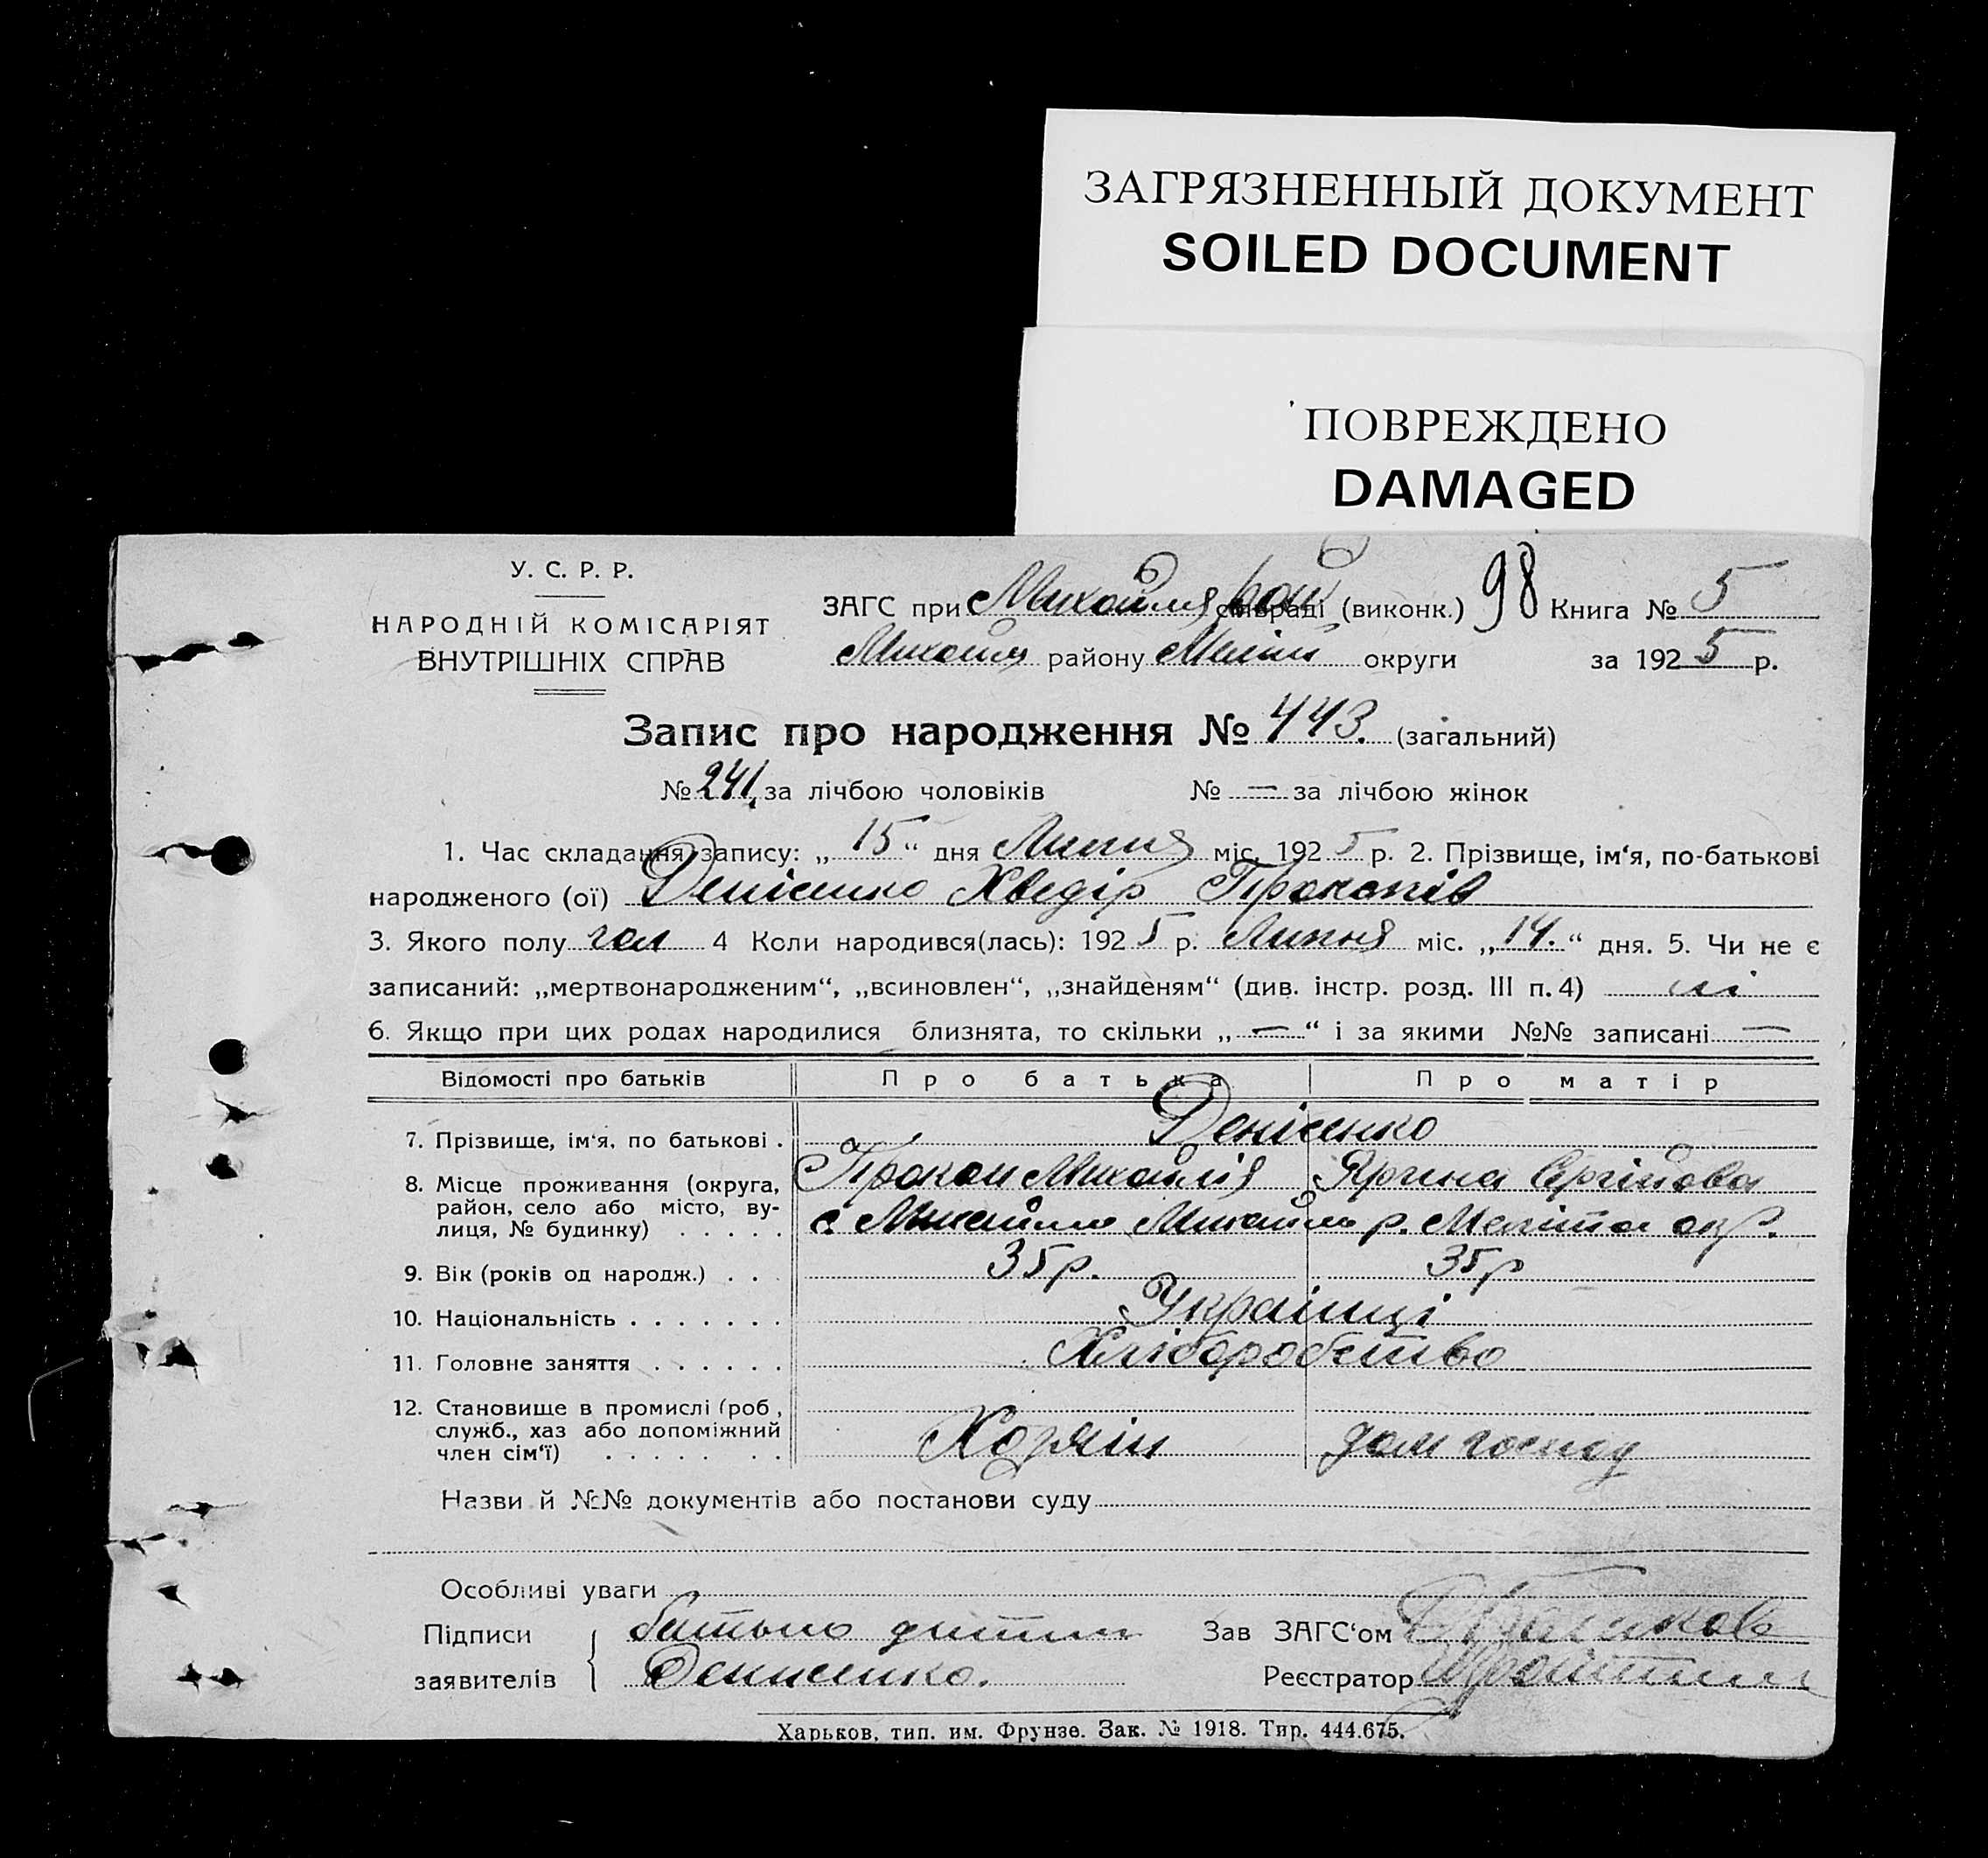 ЗАГРЯЗНЕННЫЙ ДОКУМЕНТ
SOILED DOCUMENT
ПОВРЕЖДЕНО
DAMAGED
У. С. Р. Р.
НАРОДНІЙ КОМІСАРІЯТ
ВНУТРІШНІХ СПРАВ
ЗАГС при Михайля сільраді (виконк.) 98 Книга № 5
Михайля району Меліт округи за 1925 р.
Запис про народження № 443. (загальний)
№ 241, за лічбою чоловіків № — за лічбою жінок
1. Час складання запису: „ 15 “ дня Липня міс. 1925 р. 2. Прізвище, ім‘я, по-батькові
народженого (ої) Денісенко Хведір Прокопів
3. Якого полу чол 4 Коли народився(лась): 1925 р. Липня міс. „14.“ дня. 5. Чи не є
записаний: „мертвонародженим“, „всиновлен“, „знайденям“ (див. інстр. розд. III п. 4) ні
6. Якщо при цих родах народилися близнята, то скільки „—“ і за якими №№ записані —
Відомості про батьків Про батька Про матір
7. Прізвище, ім‘я, по батькові . Денісенко
Прокоп Михайлів Ярина Сергійова
8. Місце проживання (округа, район, село або місто, вулиця, № будинку) . . . . . с. Михайлів Михайлів р. Меліта окр.
9. Вік (років од народж.) . . . 35 р. 35 р
10. Національність . . . . . . . Українці
11. Головне заняття . . . . . . Хліборобство
12. Становище в промислі (роб, служб., хаз або допоміжний член сім‘ї) . . . . . . . Хозяїн дом господ
Назви й №№ документів або постанови суду
Особливі уваги
Підписи батько дитини Зав ЗАГС‘ом
заявителів Денисенко. Реєстратор
Харьков, тип. им. Фрунзе. Зак. № 1918. Тир. 444.675.